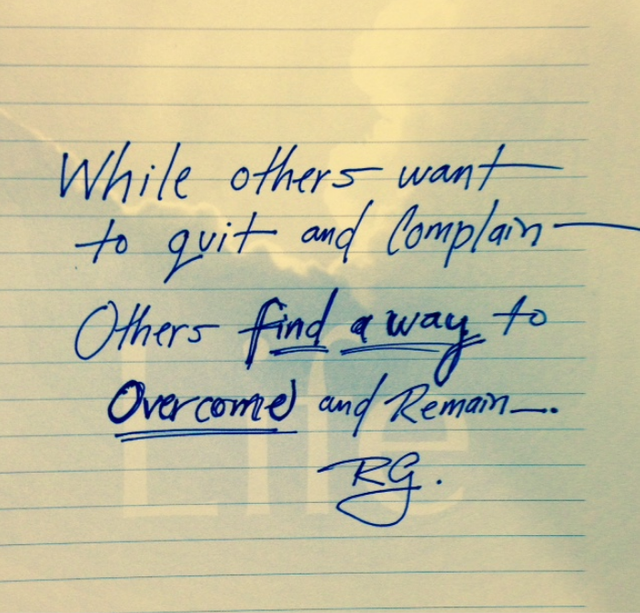 While others want
to quit and Complain
Others find a way to
Overcome and Remain.
RG.
Life